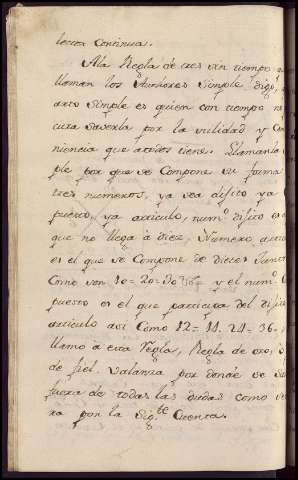 lecion Continua.
A la Regla de tres sin tiempo
llaman los Authores Simple, digo,
arto simple es quien con tiempo no
cura saverla por la utilidad y Con
niencia que atodos tiene. Llamanla
ple por que se Compone su forma
tres numeros, ya sea dijito ya
puesto, ya articulo, num.º dijito es
que no llega à diez, Numero, artic
es el que se Compone de dieces Juntos
Como son 10=20=30 y el num.º
puesto es el que participa del dijito
articulo asi Como 12=14.24=36.
llamo à esta regla, Regla de oro, ò
de fiel. valanza por donde se sa
fuera de todas las dudas como se
ra por la Sig.te Cuenta.